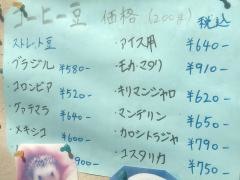 コーヒー豆 価格 (200g) 税込
ストレート豆
・ブラジル ¥580-
・コロンビア ¥520-
・グァテマラ ¥640-
・メキシコ ¥600-
900-
・アイス用 ¥640-
・モカ・マタリ ¥910-
・キリマンジャロ ¥620-
・マンデリン ¥650-
・カロシトラジャ ¥790-
・コスタリカ ¥750-